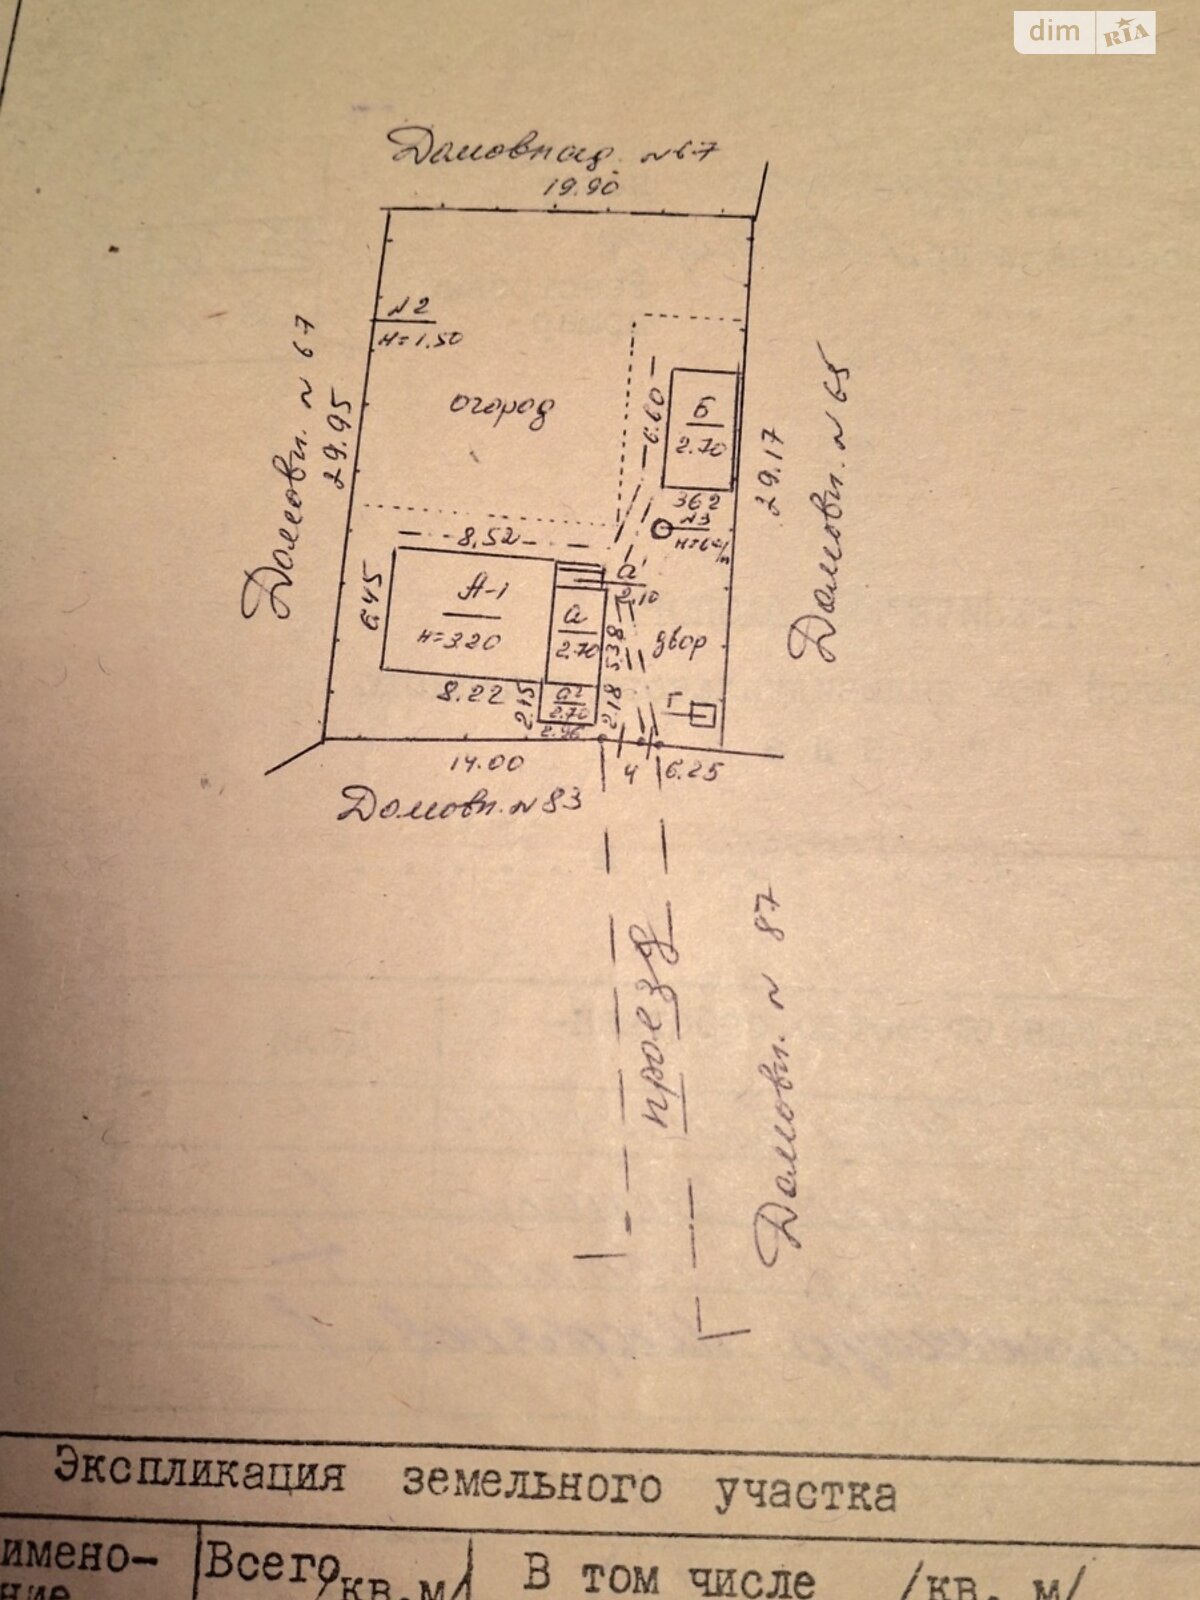 dim RIA
Домовлад. N 67
19.90
N 2
H=1.50
Домовл. N 67
29.95
огород
6.60
Б
2.70
3.62
N3
29.17
Домовл. N 65
8.52
6.45
А-1
H=3.20
а'
2.10
а
2.70
5.38
двор
8.22
2.15
а²
2.70
2.18
2.96
Г
14.00
4
6.25
Домовл. N 83
проезд
Домовл. N 87
Экспликация земельного участка
имено-
ние
Всего
/кв.м/
В том числе /кв. м/